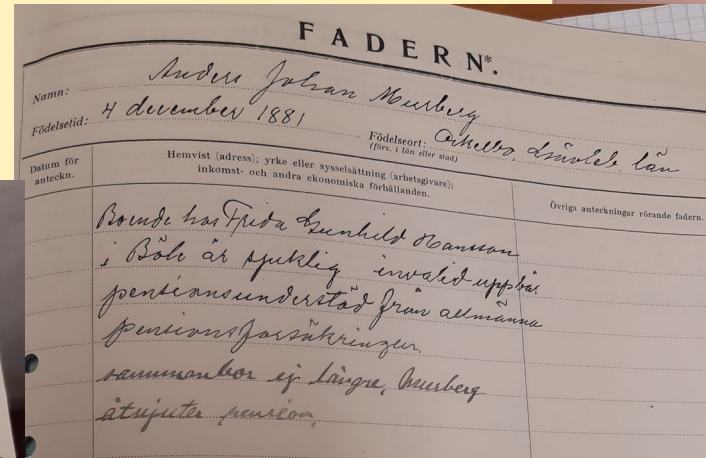 FADERN*.
Namn: Anders Johan Murberg
Födelsetid: 4 december 1881
Födelseort: Ockelbo. Gävleb. län
(förs. i län eller stad)
Datum för
anteckn.
Hemvist (adress); yrke eller sysselsättning (arbetsgivare);
inkomst- och andra ekonomiska förhållanden.
Övriga anteckningar rörande fadern.
Boende hos Frida Gunhild Hansson
i Böle är sjuklig invalid uppbär
pensionsunderstöd från allmänna
pensionsförsäkringen.
sammanbor ej längre, Murberg
åtnjuter pension.